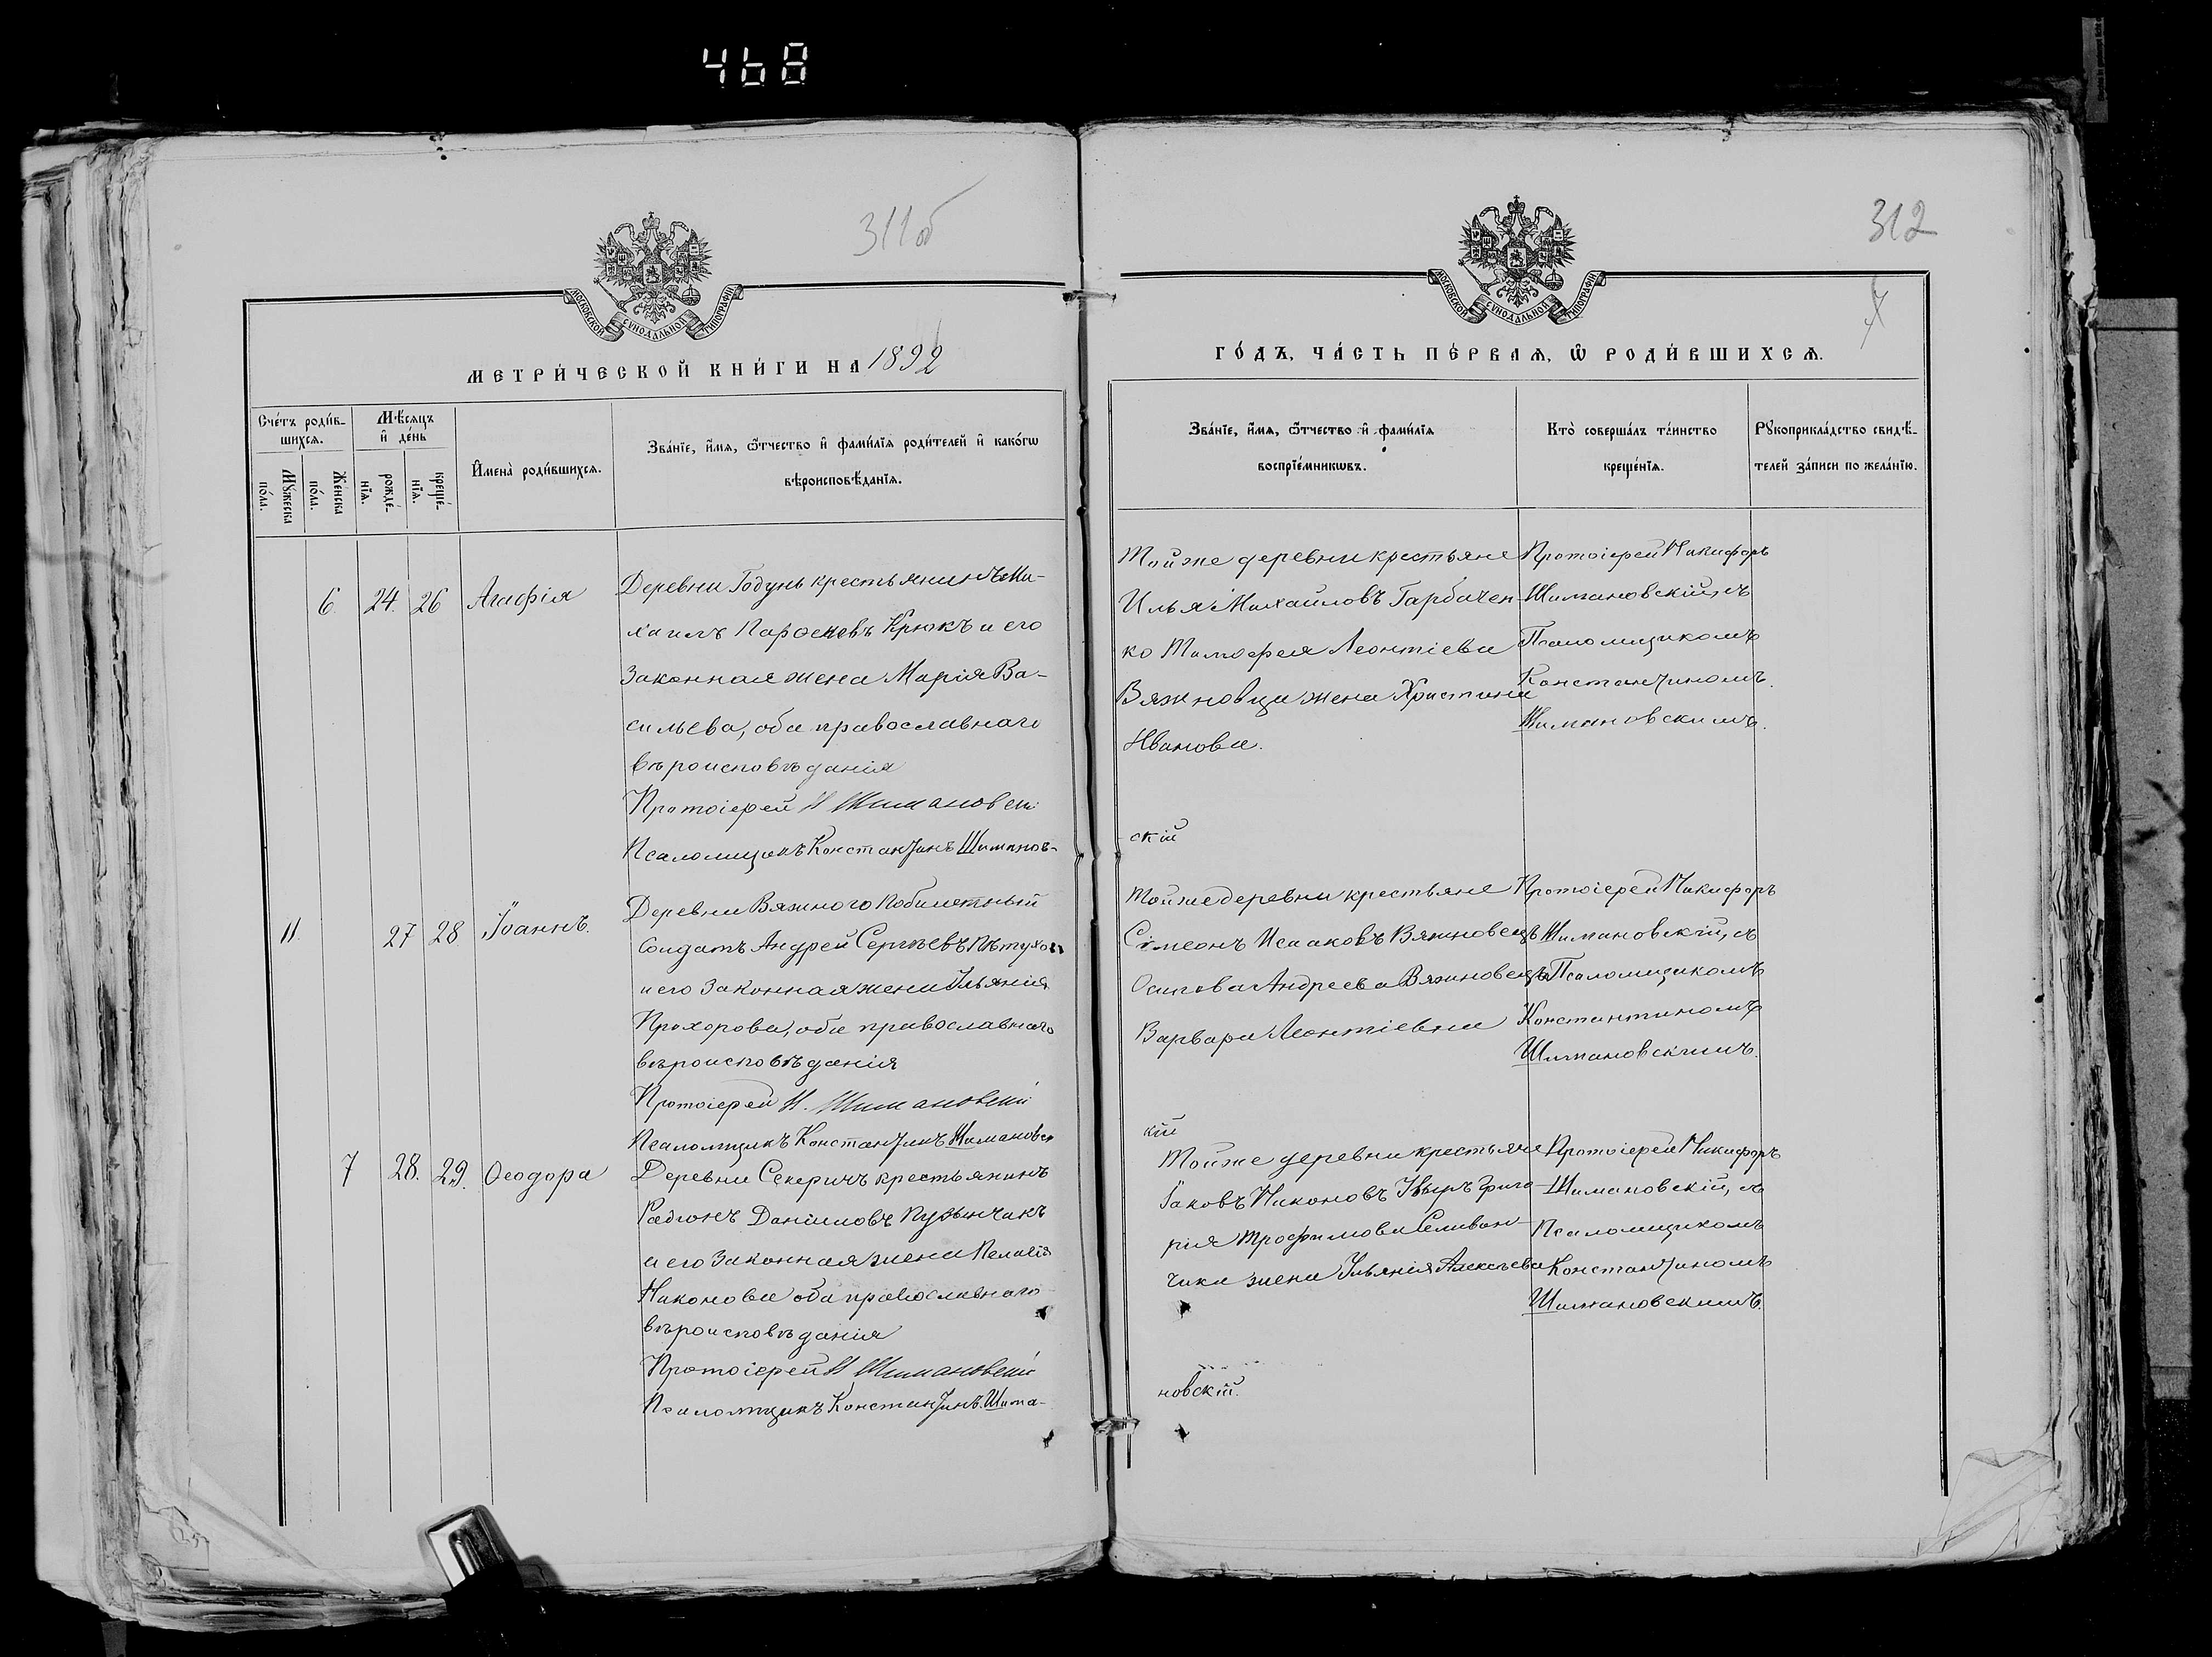 468
311об
МОСКОВСКОЙ СѴНОДАЛЬНОЙ ТИПОГРАФІИ
МЕТРИ́ЧЕСКОЙ КНИ́ГИ НА 1892
Сче́тъ роди́в-
шихсѧ.
Мѣ́сѧцъ
и҆ де́нь
Мꙋ́жеска
по́ла.
Же́нска
по́ла.
рожде́-
нїѧ.
креще́-
нїѧ.
И҆мена̀ роди́вшихсѧ.
Зва́нїе, и҆́мѧ, ѻ҆́тчество и҆ фами́лїѧ роди́телей и҆ како́гѡ
вѣроисповѣ́данїѧ.
6. 24. 26 Агафія
Деревни Годунь крестьянинъ Ми-
хаилъ Крюкъ и его
Законная жена Марія Ва-
сильева, оба православнаго
вѣроисповѣданія
Протоіерей Н Шимановскі
Псаломщикъ Константинъ Шиманов-
11. 27 28 Іоаннъ.
Деревни Вяжного Побилетный
Солдатъ Андрей Сергѣевъ Пѣтухо
и его Законная жена Ульянія
Прохорова, оба православнаго
вѣроисповѣданія
Протоіерей Н. Шимановскій
Псаломщикъ Константинъ Шимановс
7 28. 29. Ѳеодора
Деревни Секеричъ крестьянинъ
Радіонъ Даніиловъ
и его Законная жена Пелагія
Никонова оба православнаго
вѣроисповѣданія
Протоіерей Н Шимановскій
Псаломщикъ Константинъ Шима-
312
7
МОСКОВСКОЙ СѴНОДАЛЬНОЙ ТИПОГРАФІИ
ГО́ДЪ, ЧА́СТЬ ПЕ́РВАѦ, Ѡ҆ РОДИ́ВШИХСѦ.
Зва́нїе, и҆́мѧ, ѻ҆́тчество и҆ фами́лїѧ
воспрїе́мникѡвъ.
Кто̀ соверша́лъ та́инство
креще́нїѧ.
Рꙋкоприкла́дство свидѣ́-
телей за́писи по жела́нїю.
Той же деревни крестьяне
Илья Михаиловъ Гарбачен-
ко Тимофея Леонтіева
Вяжновца жена Христина
Иванова.
скій
Протоіерей Никифоръ
Шимановскій, съ
Псаломщикомъ
Константиномъ
Шимановскимъ.
Той же деревни крестьяне
Сімеонъ Исааковъ Вяжновецъ
Осипова Андреева Вяжновецъ
Варвара Леонтіевна
кій
Протоіерей Никифоръ
Шимановскій, съ
Псаломщикомъ
Константиномъ
Шимановскимъ.
Той же деревни крестьяне
Іаковъ Никоновъ Григо-
рія Трофимова Селиван-
чика жена Ульянія Алексѣева
новскій.
Протоіерей Никифоръ
Шимановскій, съ
Псаломщикомъ
Константиномъ
Шимановскимъ.